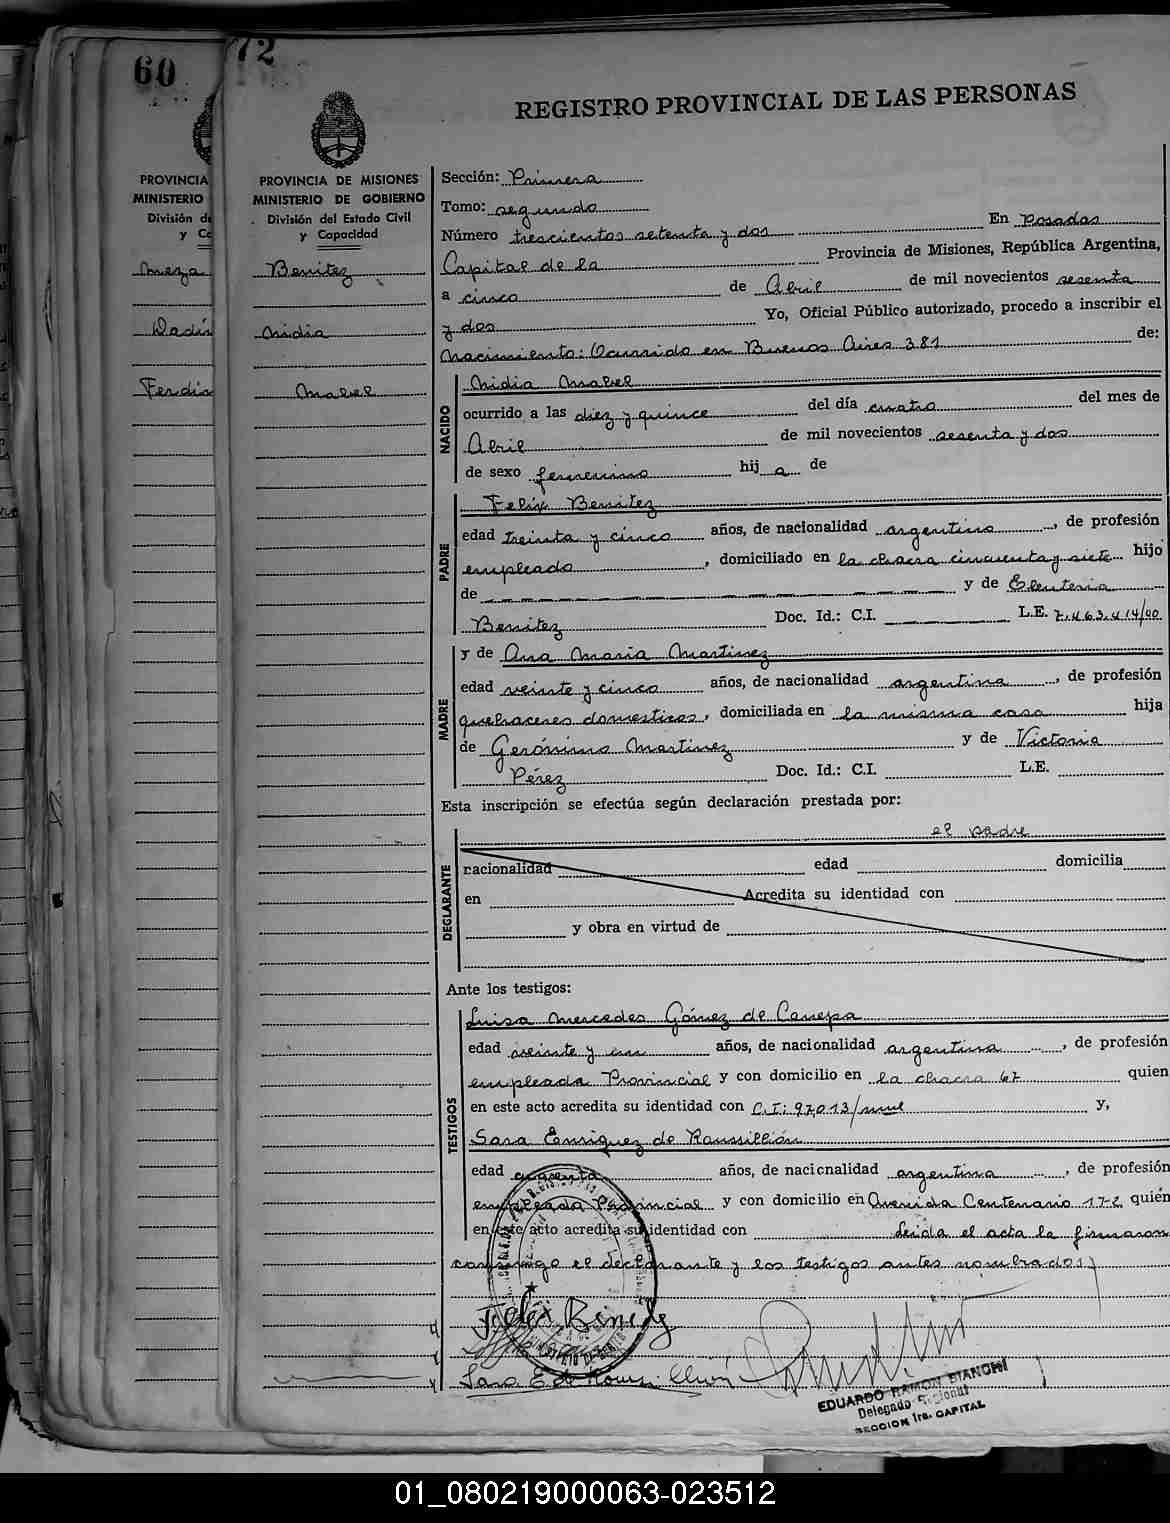 60
72
REGISTRO PROVINCIAL DE LAS PERSONAS
PROVINCIA
MINISTERIO
División de
y Ca
Meza
Ferdin
PROVINCIA DE MISIONES
MINISTERIO DE GOBIERNO
División del Estado Civil
y Capacidad
Benitez
Nidia
Mabel
Sección: Primera
Tomo: segundo
Número trescientos setenta y dos En Posadas
Capital de la Provincia de Misiones, República Argentina,
a cinco de Abril de mil novecientos sesenta
y dos Yo, Oficial Público autorizado, procedo a inscribir el
Nacimiento: Ocurrido en Buenos Aires 381 de:
NACIDO
Nidia Mabel
ocurrido a las diez y quince del día cuatro del mes de
Abril de mil novecientos sesenta y dos
de sexo femenino hij a de
PADRE
Felix Benitez
edad treinta y cinco años, de nacionalidad argentino, de profesión
empleado, domiciliado en la chacra cincuenta y siete hijo
de y de Eleuteria
Benitez Doc. Id.: C.I. L.E. 7.463.414/00
MADRE
y de Ana Maria Martinez
edad veinte y cinco años, de nacionalidad argentina, de profesión
quehaceres domesticos, domiciliada en la misma casa hija
de Gerónimo Martinez y de Victoria
Pérez Doc. Id.: C.I. L.E.
Esta inscripción se efectúa según declaración prestada por:
DECLARANTE
el padre
nacionalidad edad domicilia
en Acredita su identidad con
y obra en virtud de
Ante los testigos:
TESTIGOS
Luisa Mercedes Gómez de Canepa
edad veinte y un años, de nacionalidad argentina, de profesión
empleada Provincial y con domicilio en la chacra 67 quien
en este acto acredita su identidad con C.I: 97013/mnes y,
Sara Enriquez de Roussillión
edad años, de nacionalidad argentina, de profesión
empleada Provincial y con domicilio en Avenida Centenario 172 quien
en este acto acredita su identidad con Leida el acta la firmaron
conmigo el declarante y los testigos antes nombrados
Felix Benitez
Sara E de Roussillión
EDUARDO RAMON BIANCHI
Delegado Regional
SECCION 1ra. CAPITAL
01_080219000063-023512